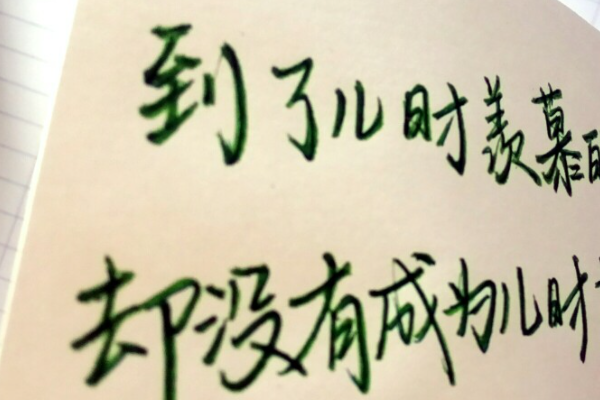 到了儿时羡慕的
却没有成为儿时